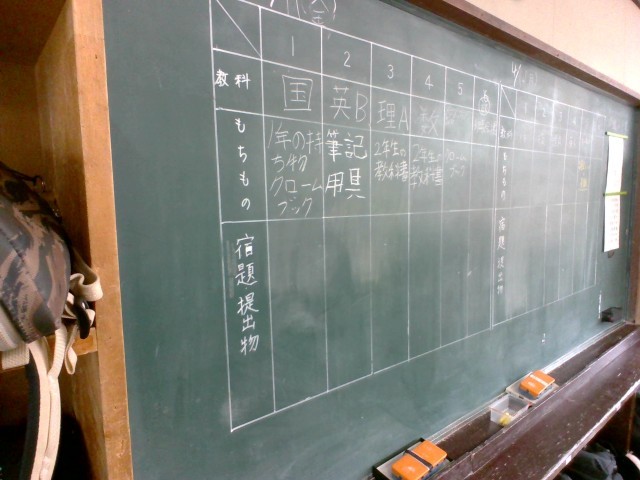 1 2 3 4 5
教科 国 英B 理A 数
もちもの
1年の持ち物
クロームブック
筆記用具
2年生の教科書
2年生の教科書
クロームブック
宿題 提出物
教科
もちもの
宿題 提出物